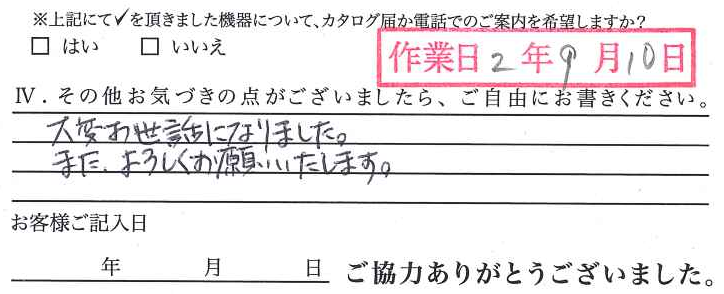 ※上記にて✓を頂きました機器について、カタログ届か電話でのご案内を希望しますか?
□ はい □ いいえ
作業日 2 年 9 月 10 日
Ⅳ．その他お気づきの点がございましたら、ご自由にお書きください。
大変お世話になりました。
また、よろしくお願いいたします。
お客様ご記入日
年 月 日 ご協力ありがとうございました。